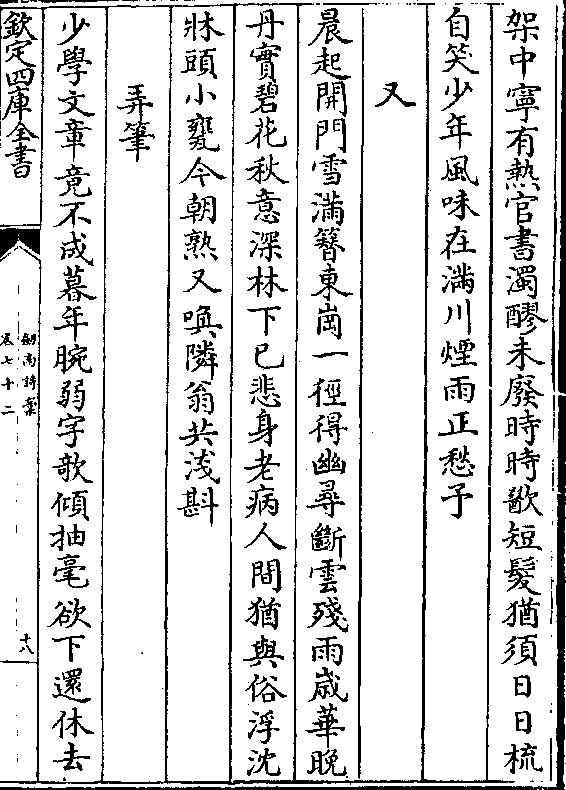 架中寧有熱官書濁醪未廢時時歠短髮猶須日日梳
自笑少年風味在滿川煙雨正愁予
又
晨起開門雪滿簪東崗一徑得幽尋斷雲殘雨歳華晚
丹實碧花秋意深林下已悲身老病人間猶與俗浮沈
牀頭小甕今朝熟又喚隣翁共淺斟
弄筆
少學文章竟不成暮年腕弱字欹傾抽毫欲下還休去
欽定四庫全書
劍南詩稾
卷七十二
十八